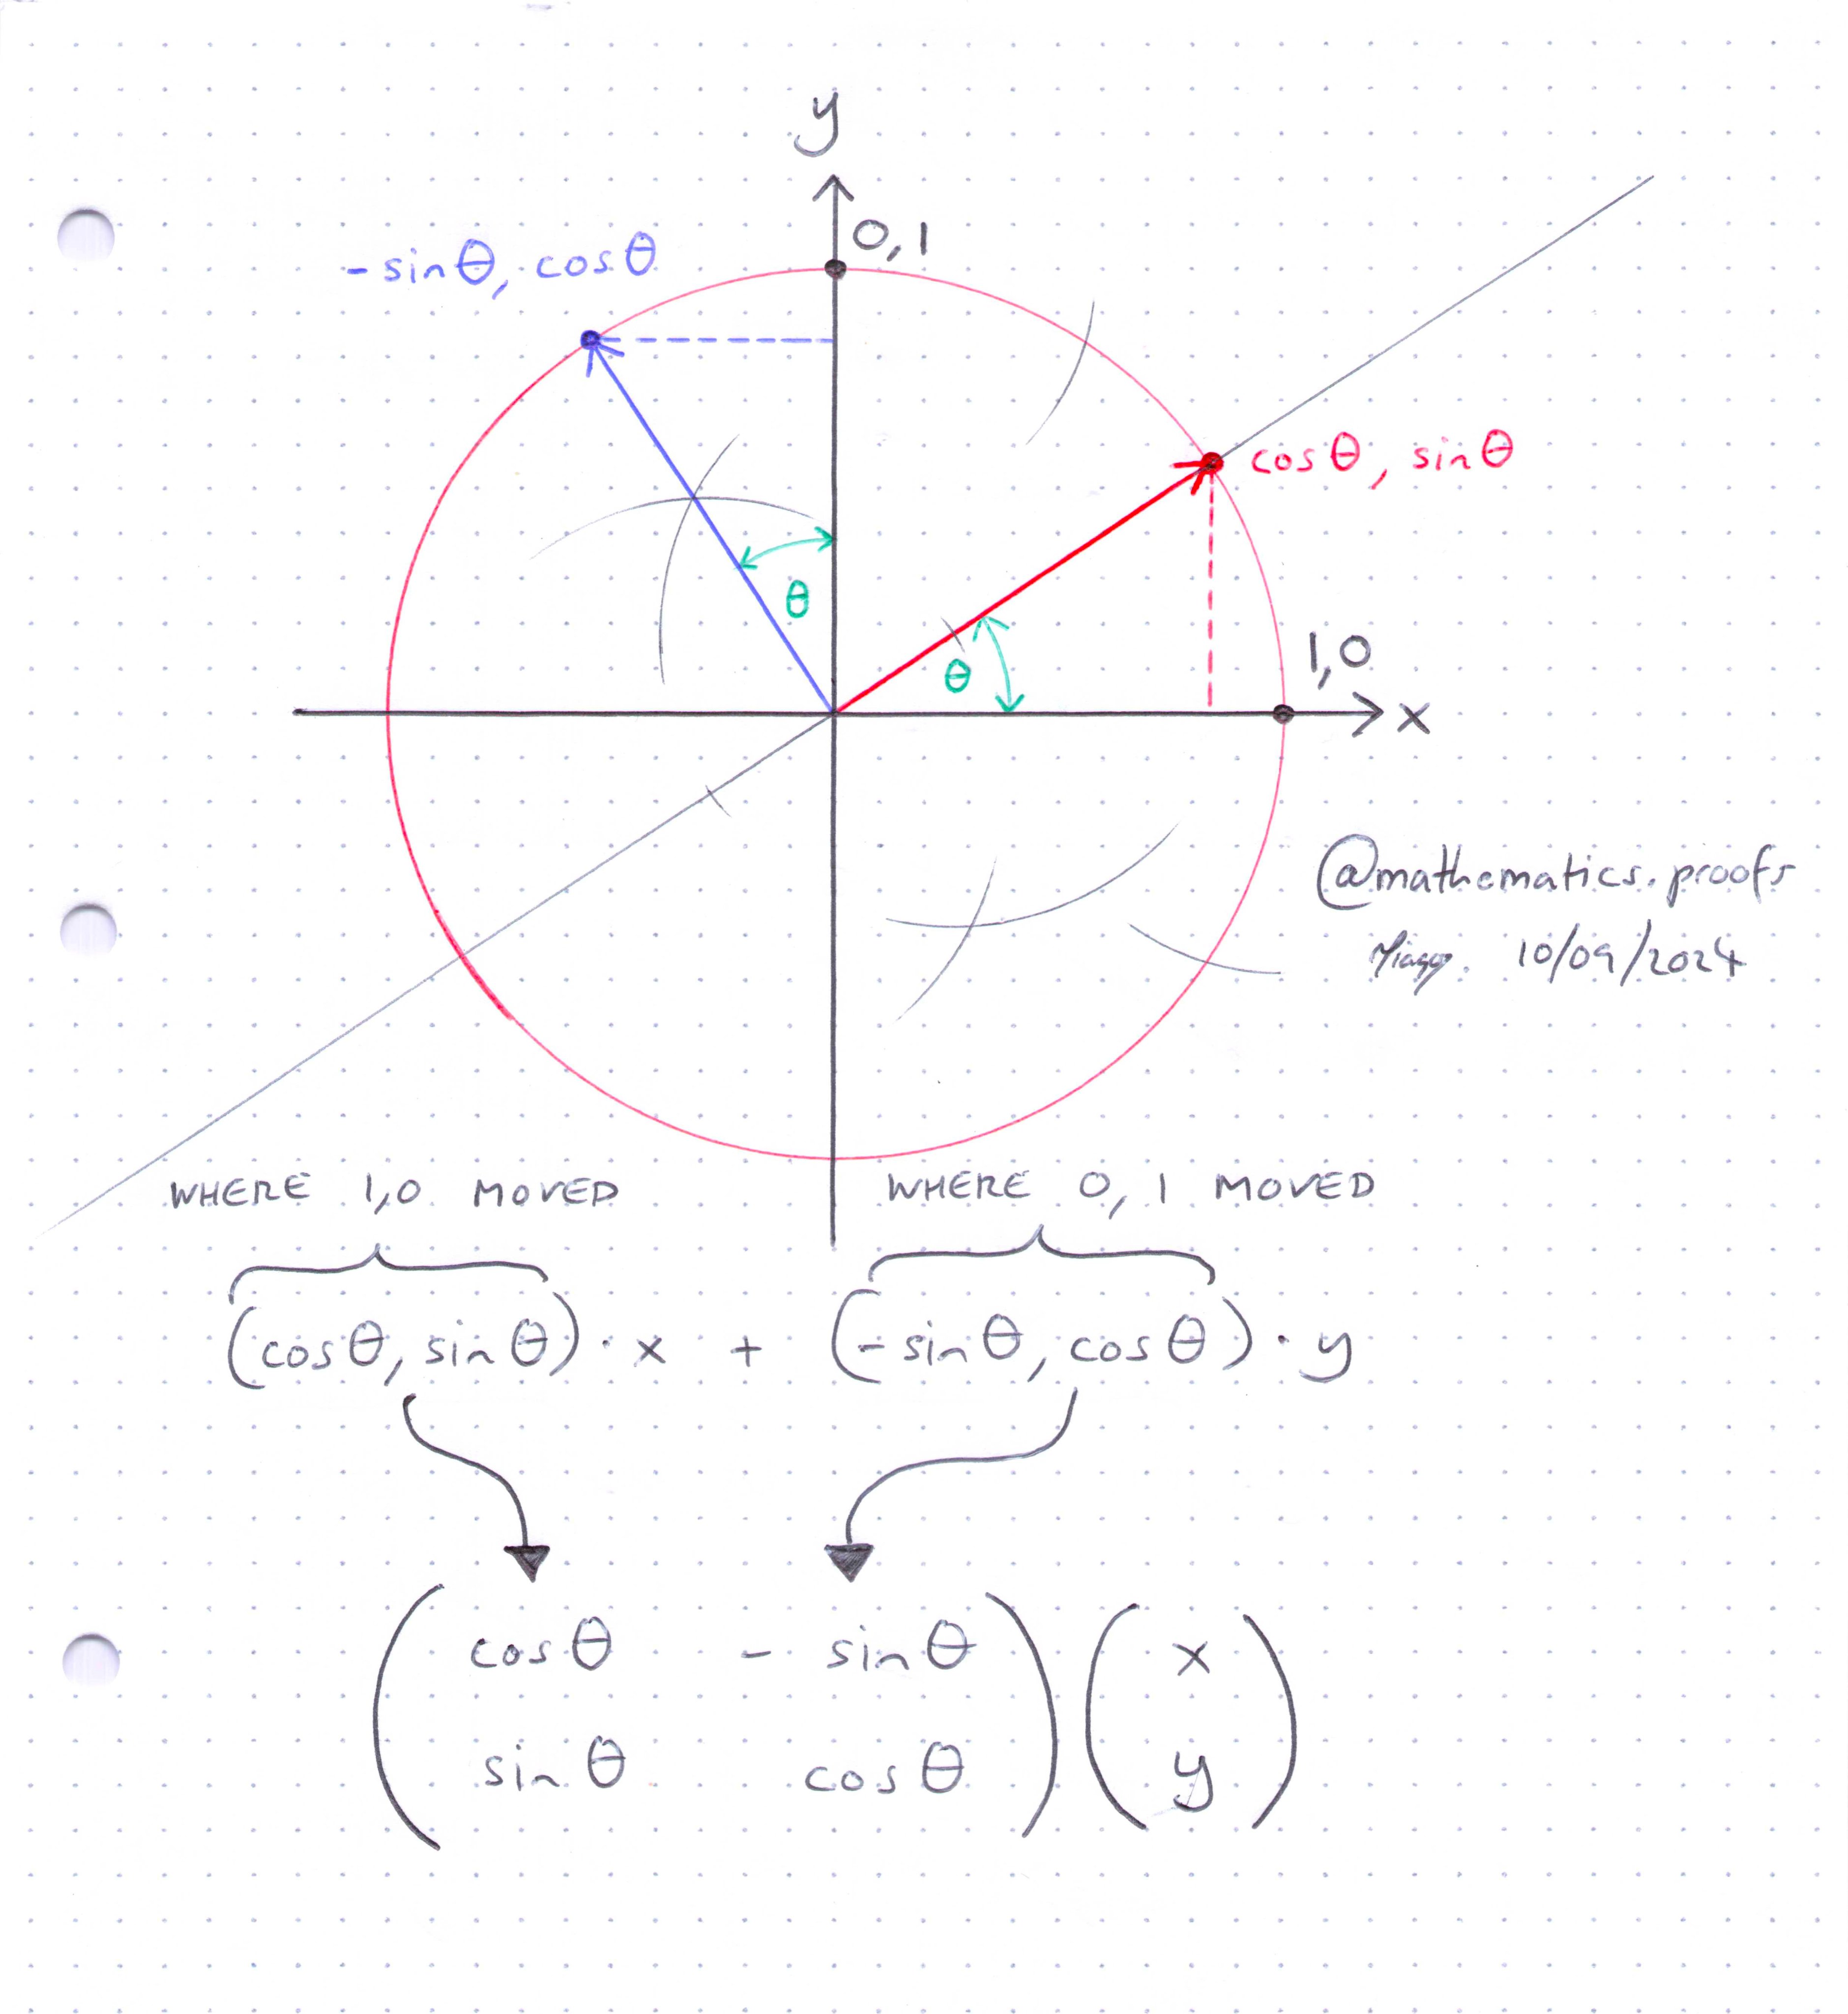 y
0,1
-sinθ, cosθ
cosθ, sinθ
θ
θ
1,0
x
@mathematics.proofs
10/09/2024
WHERE 1,0 MOVED
WHERE 0,1 MOVED
(cosθ, sinθ)·x + (-sinθ, cosθ)·y
( cosθ - sinθ ) ( x )
( sinθ cosθ ) ( y )